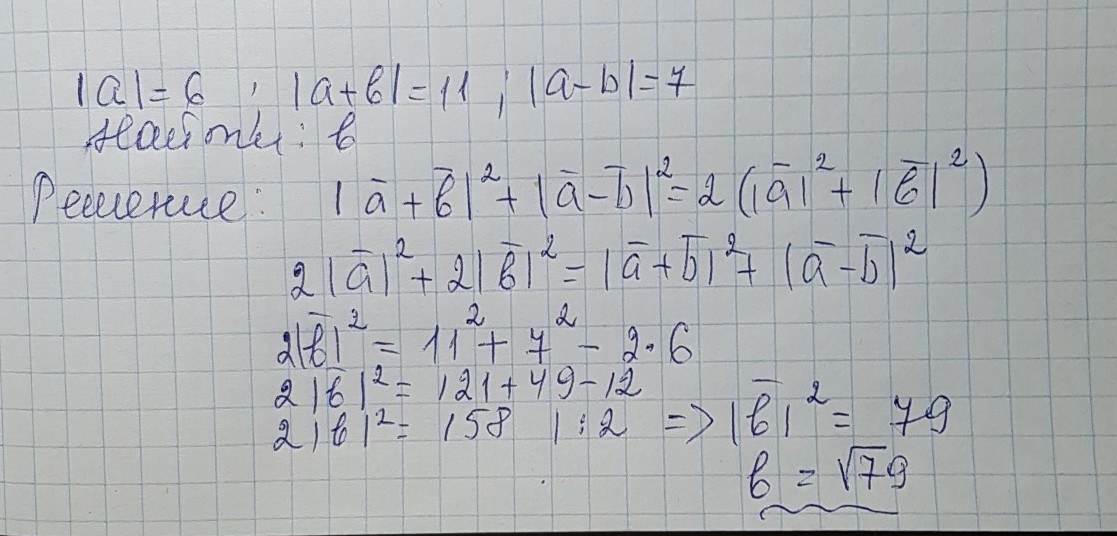 |a| = 6 ; |a+b| = 11 ; |a-b| = 7
Найти: b
Решение: |a̅ + b̅|² + |a̅ - b̅|² = 2 (|a̅|² + |b̅|²)
2|a̅|² + 2|b̅|² = |a̅ + b̅|² + |a̅ - b̅|²
2|b̅|² = 11² + 7² - 2·6
2|b̅|² = 121 + 49 - 12
2|b|² = 158 |:2 => |b̅|² = 79
b = √79